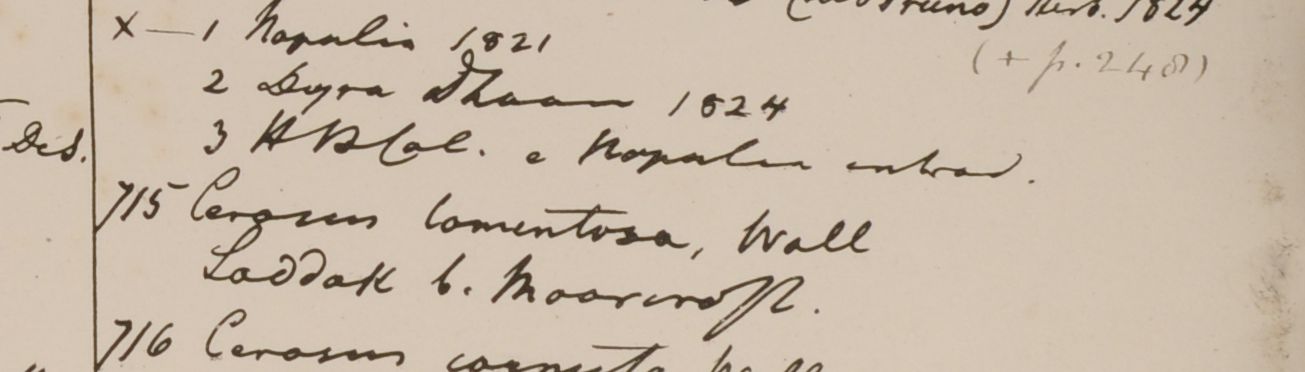 (sub Pruno) Herb. 1824
x — 1 Napalia 1821
(+ p. 248)
2 Deyra Dhoon 1824
Des.
3 H B Cal. e Napalia introd.
715 Cerasus tomentosa, Wall
Laddak b. Moorcroft.
716 Cerasus cornuta Wall